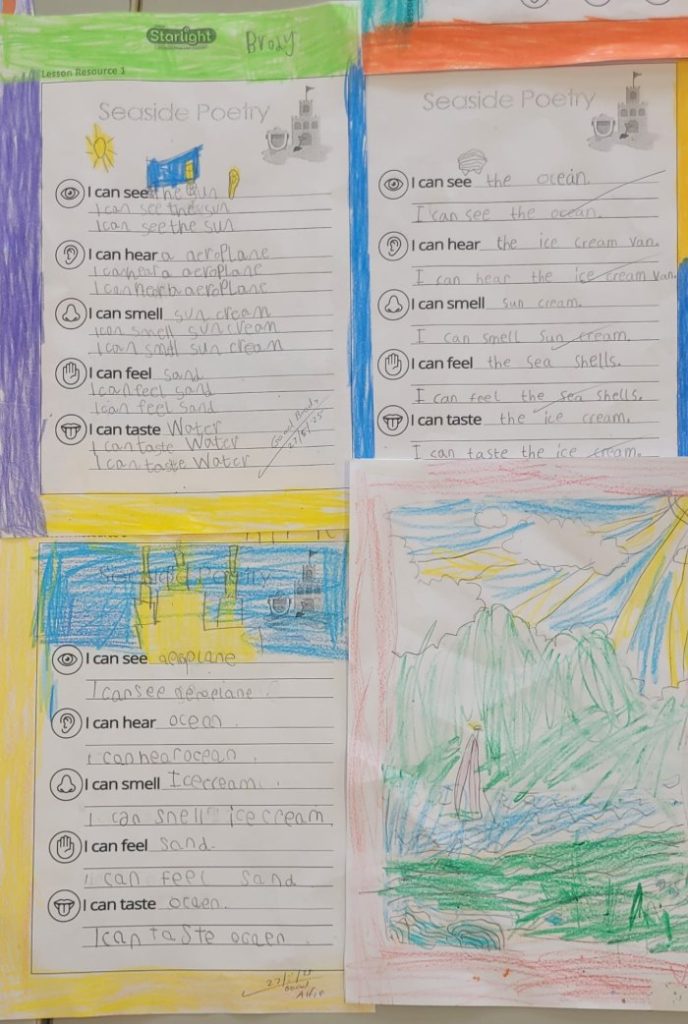 Starlight
Brody
Lesson Resource 1
Seaside Poetry
I can see the sun
I can see the sun
I can see the sun
I can hear a aeroplane
I can hear a aeroplane
I can hear a aeroplane
I can smell sun cream
I can smell sun cream
I can smell sun cream
I can feel sand
I can feel sand
I can feel sand
I can taste Water
I can taste Water
I can taste Water
Good Brody
27/5/25
Seaside Poetry
I can see the ocean.
I can see the ocean.
I can hear the ice cream van.
I can hear the ice cream van.
I can smell sun cream.
I can smell sun cream.
I can feel the sea shells.
I can feel the sea shells.
I can taste the ice cream.
I can taste the ice cream.
Seaside Poetry
I can see aeroplane
I can see aeroplane.
I can hear ocean.
I can hear ocean.
I can smell Icecream.
I can snell ice cream
I can feel sand.
I can feel sand
I can taste ocaen.
I can taste ocaen.
Good
Alfie